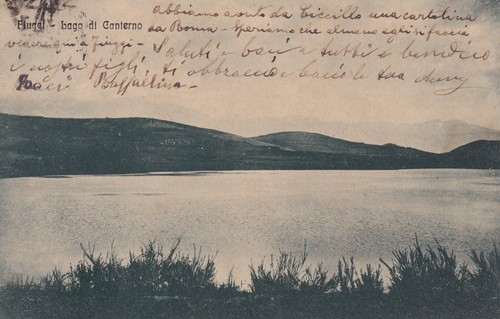 Fiuggi - Lago di Canterno
Abbiamo avuto da Ciccillo una cartolina
da Roma - Speriamo che almeno egli si faccia
vedere qui a Fiuggi - Saluti e baci a tutti e benedico
i nostri figli, ti abbraccio e bacio la tua
Baci Raffaelina -